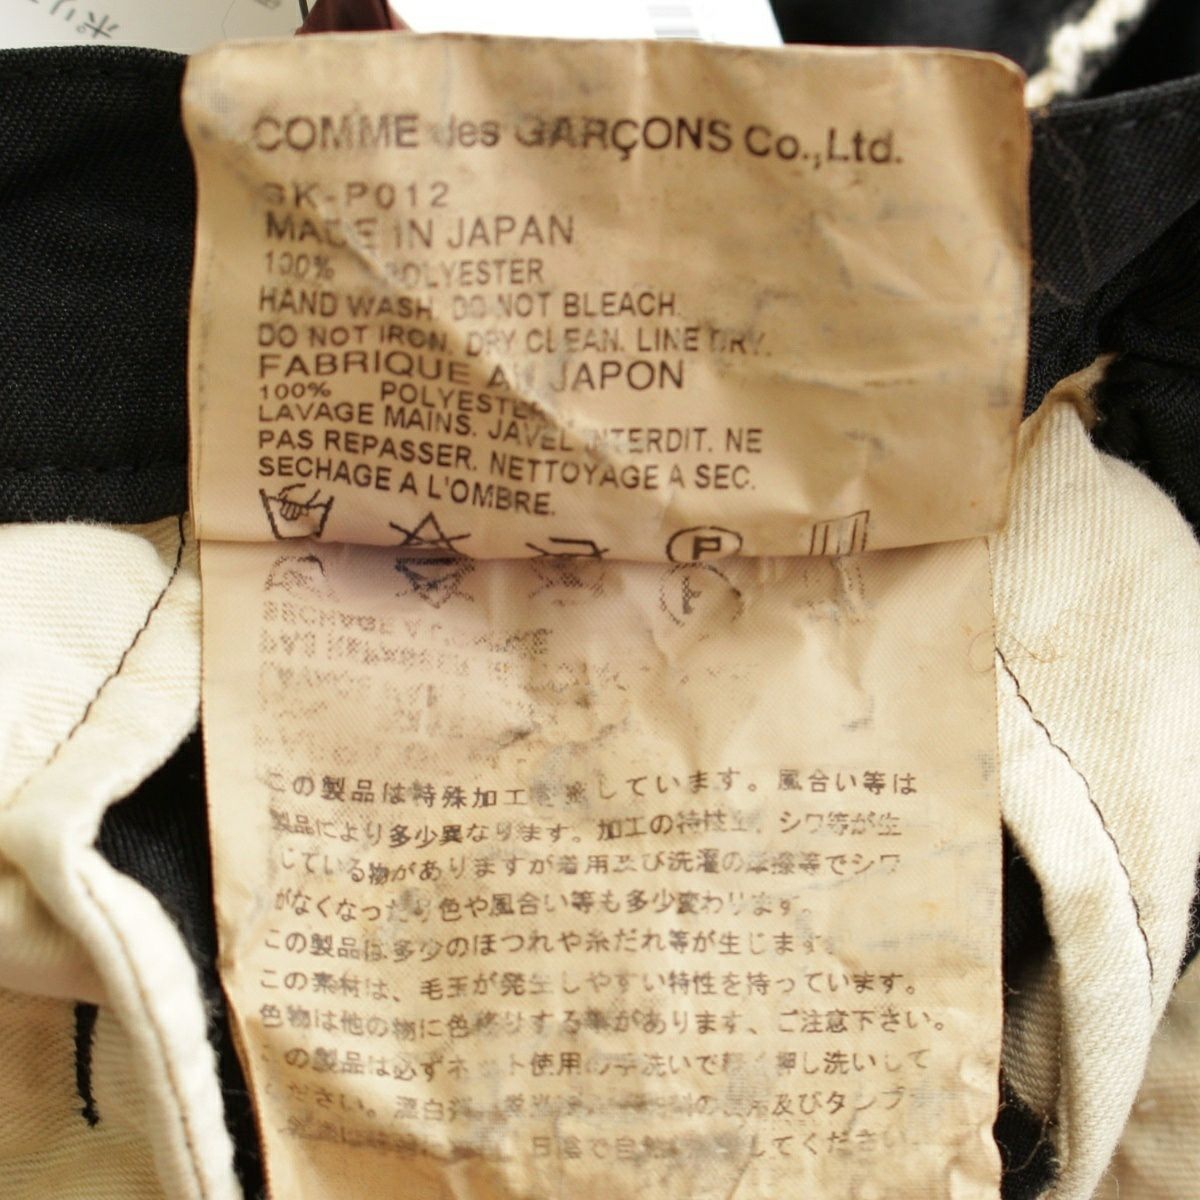 ポリ
COMME des GARÇONS Co.,Ltd.
SK-P012
MADE IN JAPAN
100% POLYESTER
HAND WASH. DO NOT BLEACH.
DO NOT IRON. DRY CLEAN. LINE DRY.
FABRIQUE AU JAPON
100% POLYESTER
LAVAGE MAINS. JAVEL INTERDIT. NE
PAS REPASSER. NETTOYAGE A SEC.
SECHAGE A L'OMBRE.
P
F
この製品は特殊加工を施しています。風合い等は
製品により多少異なります。加工の特性上、シワ等が生
じている物がありますが着用及び洗濯の摩擦等でシワ
がなくなったり色や風合い等も多少変わります。
この製品は多少のほつれや糸だれ等が生じます。
この素材は、毛玉が発生しやすい特性を持っています。
色物は他の物に色移りする事があります、ご注意下さい。
この製品は必ずネット使用の手洗いで軽く押し洗いして
ください。 及びタンブ
日陰で自然 してください